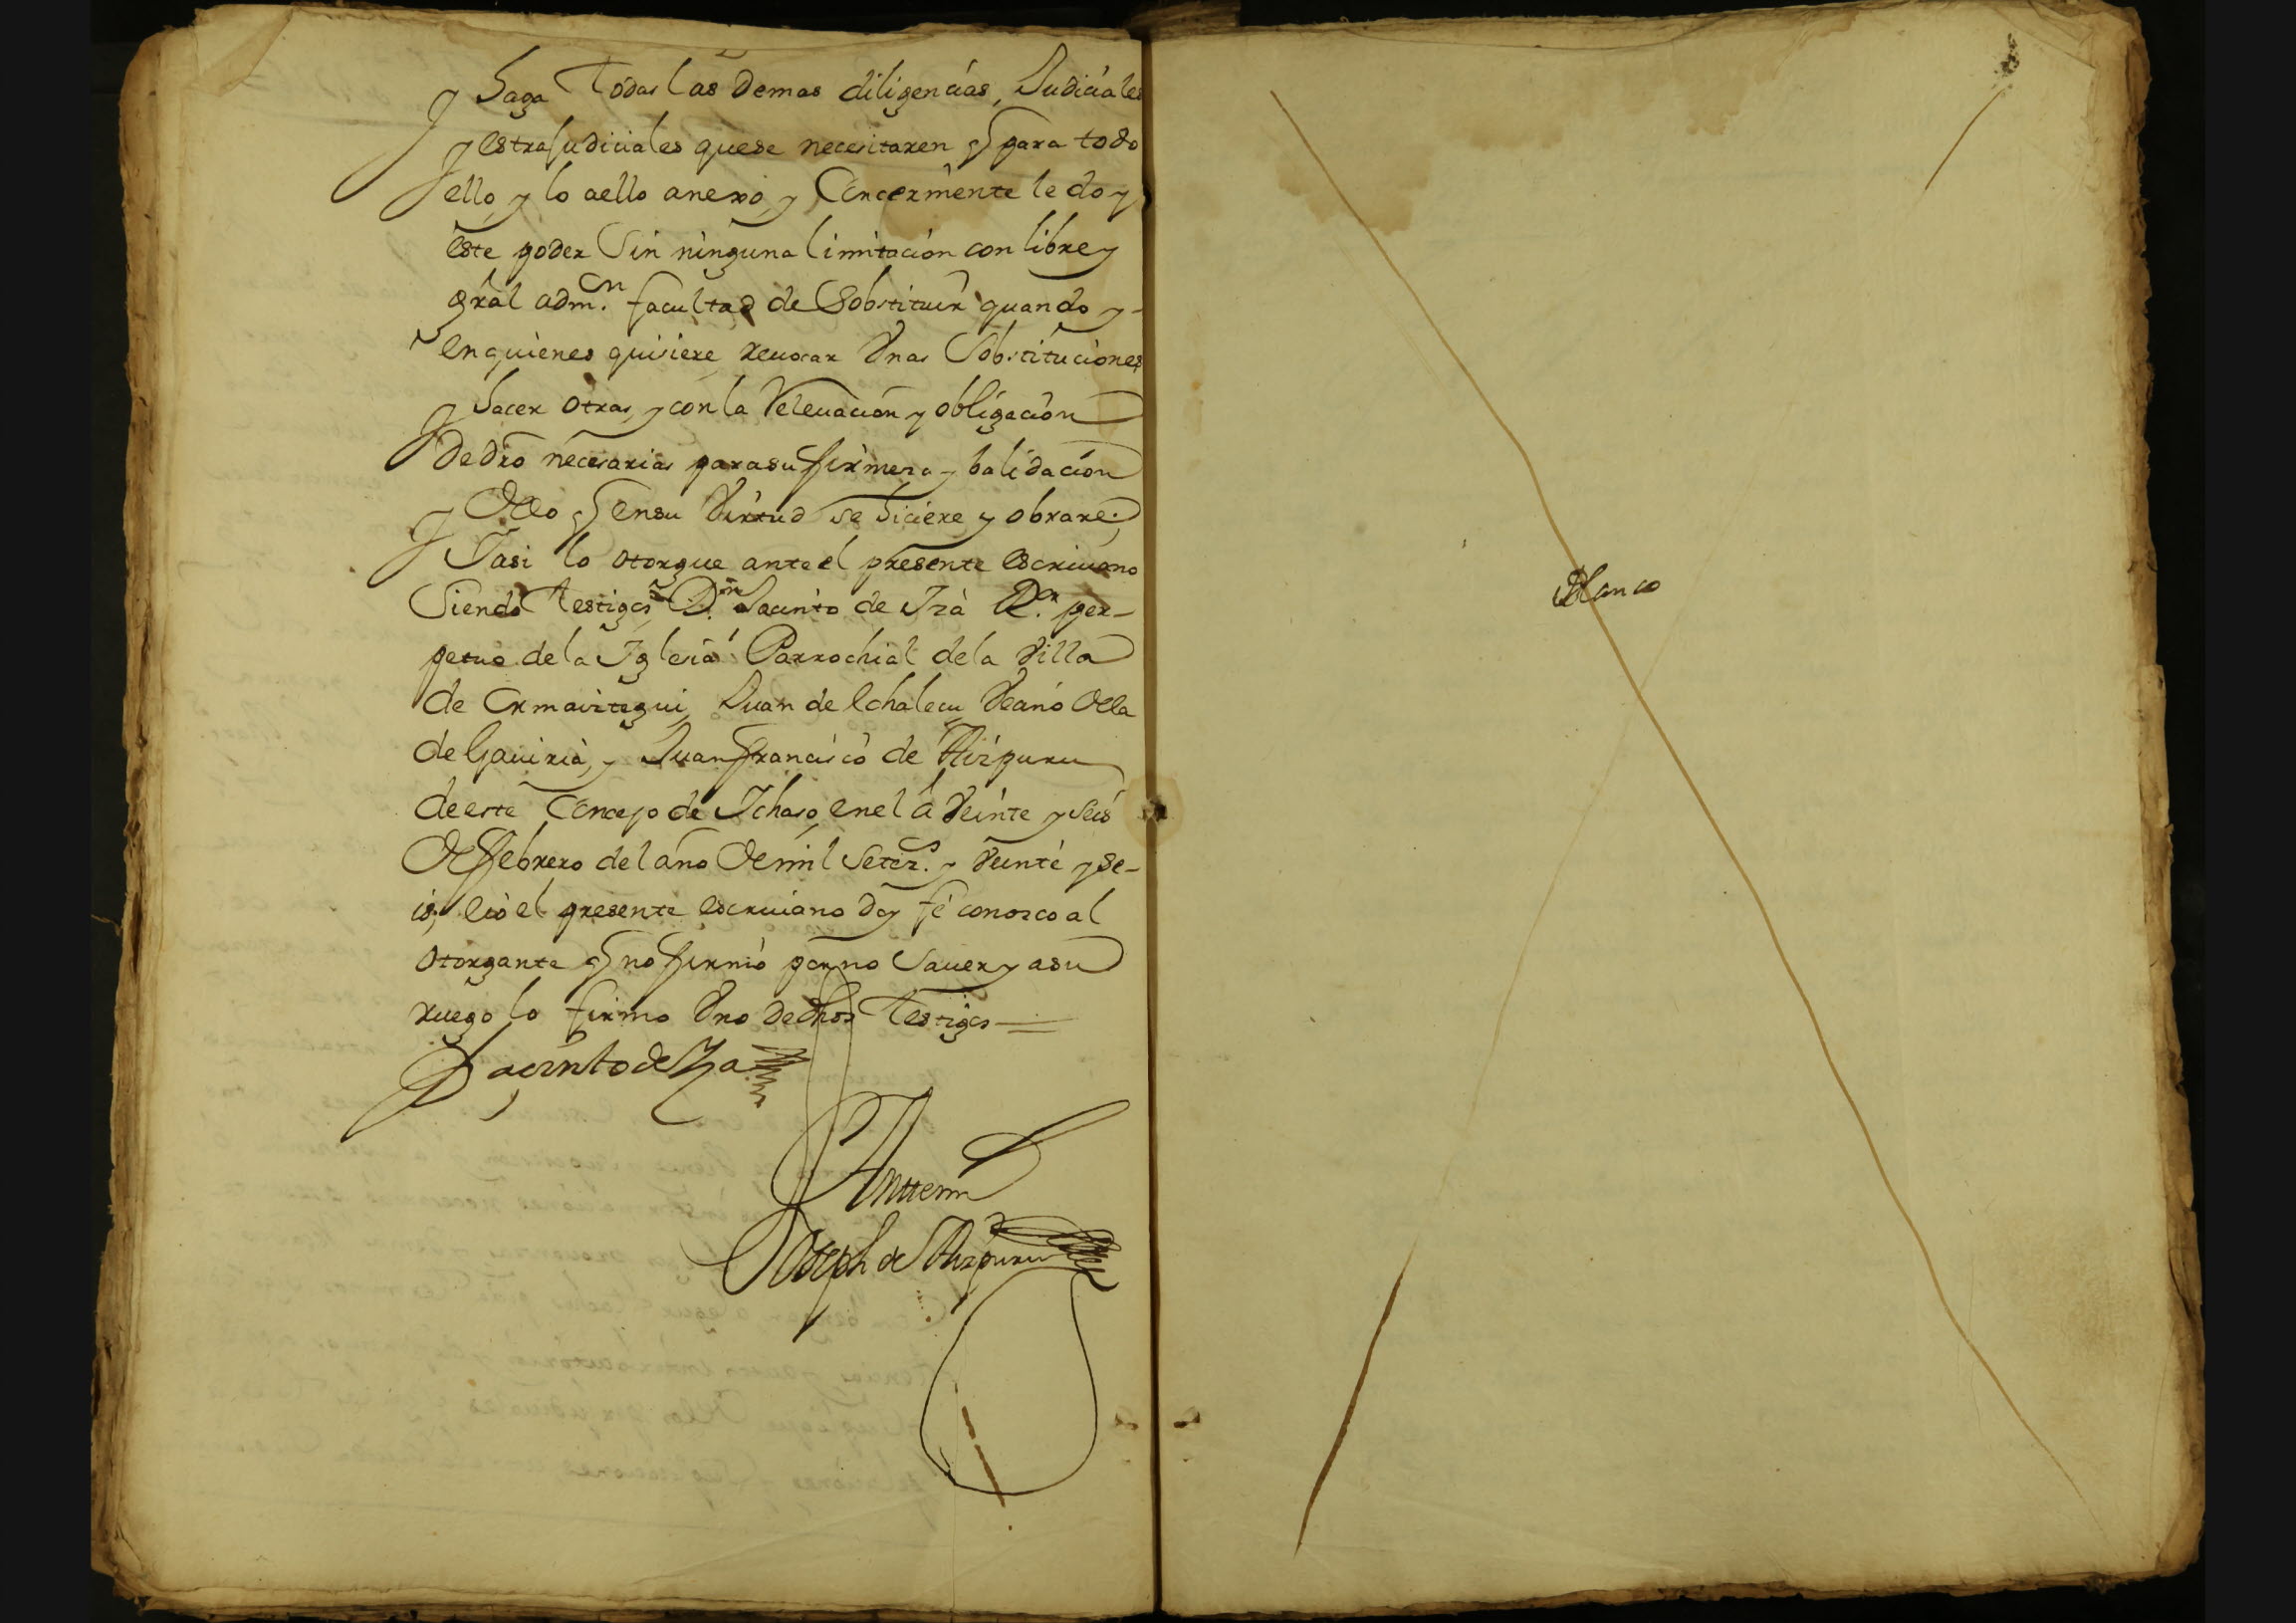 y haga todas las demas diligencias, Judiciales
y estrajudiciales quese necesitaren q para todo
ello, y lo aello anexo, y Concermente le doy
este poder Sin ninguna limitacion con libre y
gral adm.on facultad de Sobstituir quando y
enquienes quisiere revocar Unas Sobstituciones
y hacer otras, y con la Relevación y obligación
de dro necesarias para su firmeza y balidacion
y dello q en su Virtud se hiciere y obrare;
Y asi lo otorgue ante el presente escrivano
Siendo testigos D.n Jacinto de Iza R.or per-
petuo de la Iglesia Parrochial dela Villa
de Ormaiztegui, Juan de Echalecu Veano della
de Gaviria, y Juan francisco de Aizpuru
de este Concejo de Ichaso, en el à Veinte y Seis
de febrero del año de mil Setez.s y Veinte y se-
is, e yo el presente escrivano doy fè conozco al
otorgante q no firmò por no Saver y a su
ruego lo firmo Uno de dhos testigos
Jacinto de Iza
Antemi
Joseph de Aizpuru
Blanco